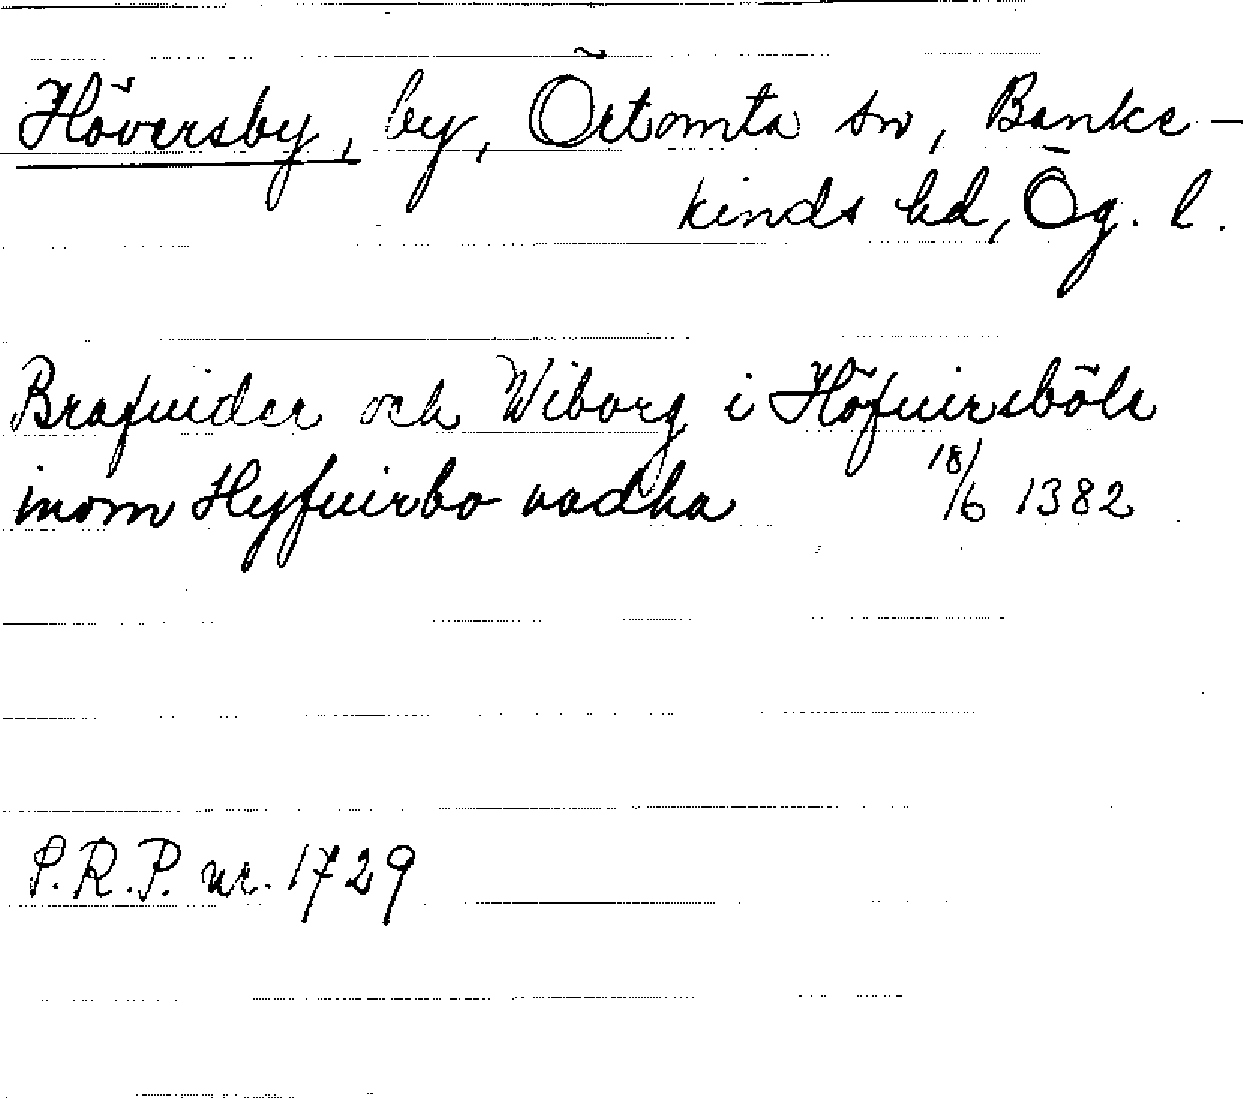 Höversby, by, Örtomta sn, Banke-
kinds hd, Ög. l.
Brafuider och Wiborg i Höfuirsböle
inom Hyfuirbo vadha 18/6 1382
P.R.P. nr. 1729